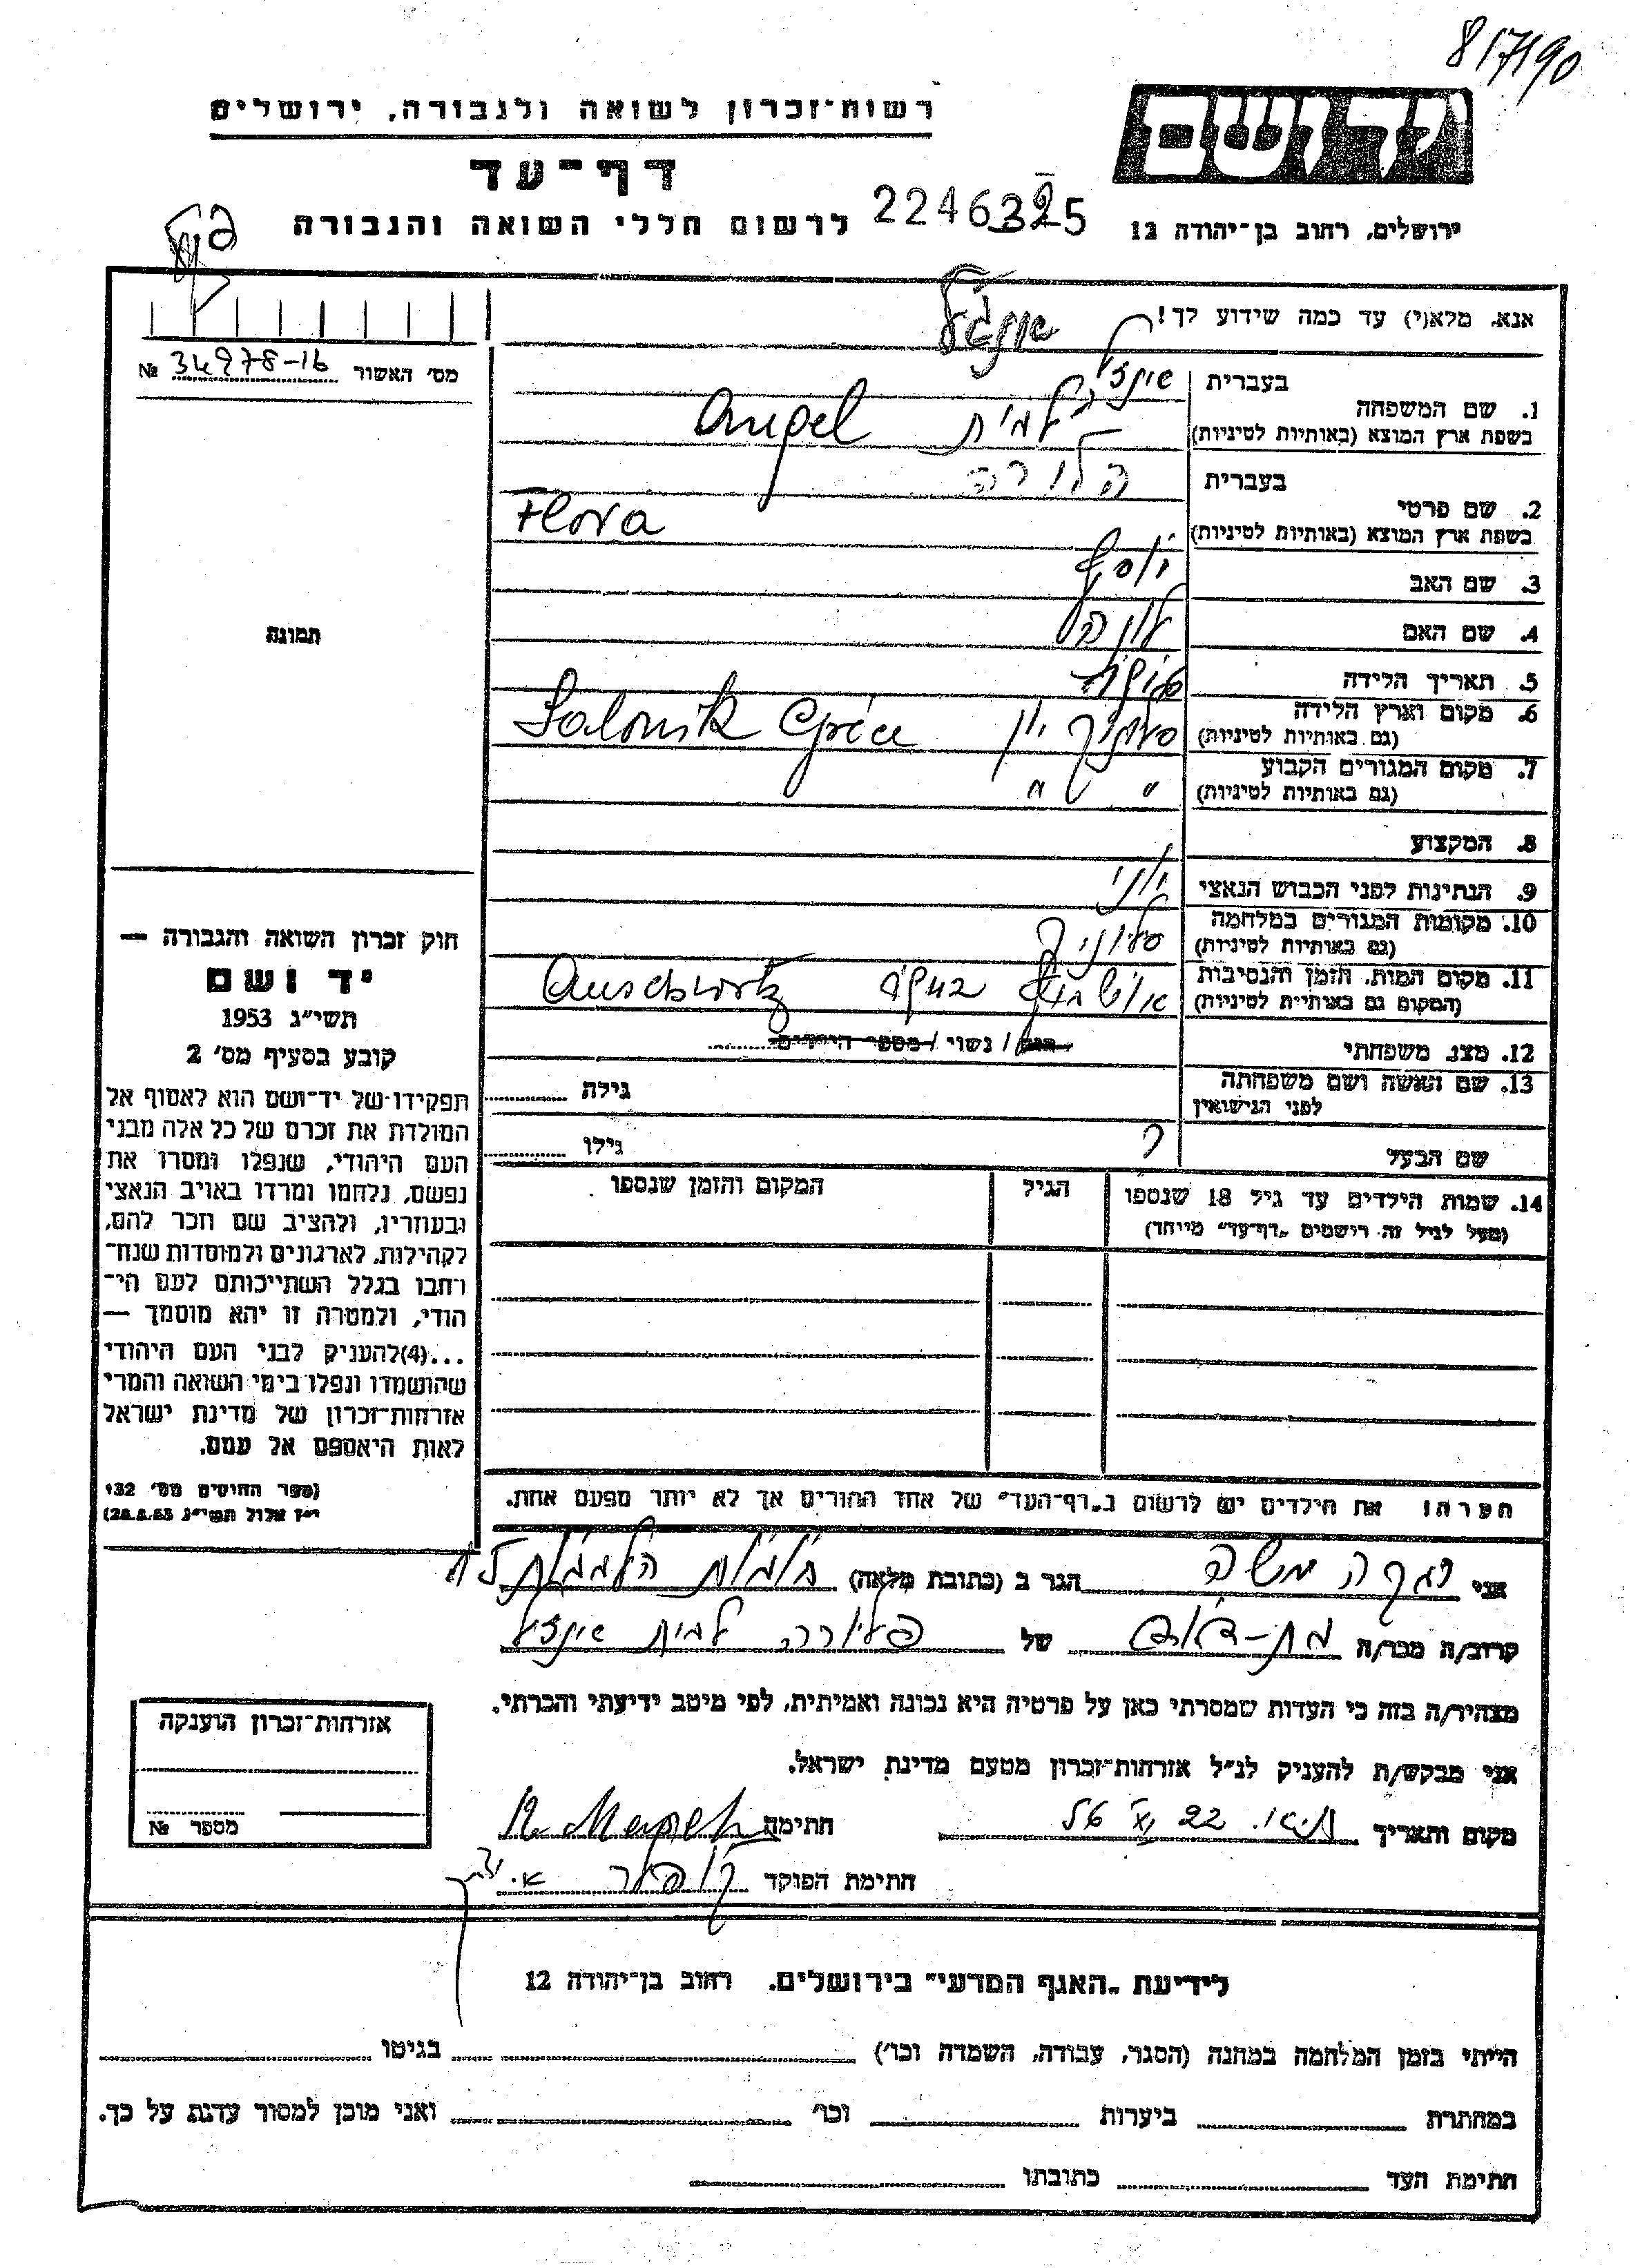 817190
רשות־זכרון לשואה ולגבורה, ירושלים
דף־עד
לרשום חללי השואה והגבורה
ידושם
ירושלים, רחוב בן־יהודה 12
אנא, מלא(י) עד כמה שידוע לך!
מס׳ האשור № 34978-16
1. שם המשפחה
בעברית
בשפת ארץ המוצא (באותיות לטיניות) לבית Angel
2. שם פרטי
בעברית פלורה
בשפת ארץ המוצא (באותיות לטיניות) Flora
3. שם האב יוסף
4. שם האם לונה
5. תאריך הלידה
6. מקום וארץ הלידה
(גם באותיות לטיניות) סלוניק יון Salonik Grèce
7. מקום המגורים הקבוע
(גם באותיות לטיניות) " "
8. המקצוע
9. הנתינות לפני הכבוש הנאצי יוני
10. מקומות המגורים במלחמה
(גם באותיות לטיניות) סלוניק
11. מקום המות, הזמן והנסיבות
(המקום גם באותיות לטיניות) אושביץ Auschwitz
12. מצב משפחתי רווק / נשוי / מספר הילדים
13. שם האשה ושם משפחתה
לפני הנישואין גילה
שם הבעל ? גילו
14. שמות הילדים עד גיל 18 שנספו
(מעל לגיל זה רישמים „דף־עד״ מייחד)
הגיל
המקום והזמן שנספו
הערה! את הילדים יש לרשום ב„דף־העד״ של אחד ההורים אך לא יותר מפעם אחת.
תמונה
חוק זכרון השואה והגבורה —
יד ושם
תשי״ג 1953
קובע בסעיף מס׳ 2
תפקידו של יד־ושם הוא לאסוף אל
המולדת את זכרם של כל אלה מבני
העם היהודי, שנפלו ומסרו את
נפשם, נלחמו ומרדו באויב הנאצי
ובעוזריו, ולהציב שם וזכר להם,
לקהילות, לארגונים ולמוסדות שנח־
רחבו בגלל השתייכותם לעם הי־
הודי, ולמטרה זו יהא מוסמך —
...(4)להעניק לבני העם היהודי
שהושמדו ונפלו בימי השואה והמרי
אזרחות־זכרון של מדינת ישראל
לאות היאספם אל עמם.
(ספר החוקים מס׳ 132
י״ז אלול תשי״ג 28.8.53)
אני משה הגר ב (כתובת מלאה)
קרוב/ה מכר/ה של פלורה לבית
מצהיר/ה בזה כי העדות שמסרתי כאן על פרטיה היא נכונה ואמיתית, לפי מיטב ידיעתי והכרתי.
אני מבקש/ת להעניק לנ״ל אזרחות־זכרון מטעם מדינת ישראל.
מקום ותאריך 22 חתימה
חתימת הפוקד
אזרחות־זכרון הוענקה
מספר №
לידיעת „האגף המדעי״ בירושלים. רחוב בן־יהודה 12
הייתי בזמן המלחמה במחנה (הסגר, עבודה, השמדה וכו׳) בגיטו
במחתרת ביערות וכו׳ ואני מוכן למסור עדות על כך.
חתימת העד כתובתו